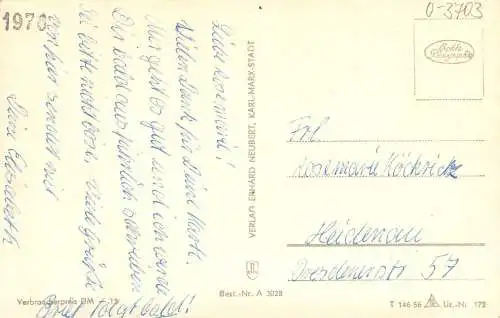 1970
0-3703
Liebe Rosemarie!
Vielen Dank für Deine Karte.
Mir geht es gut und ich werde
Dir bald ausführlich schreiben
Sei bitte nicht böse. Viele Grüße
von hier sendet Dir
Deine Elisabeth
Brief folgt bald!
VERLAG ERHARD NEUBERT, KARL-MARX-STADT
Echte
Frl.
Rosemarie Röckrich
Heidenau
Dresdenerstr. 57
Verbraucherpreis DM
Best.-Nr. A 3028
T 146-56
Liz.-Nr. 172